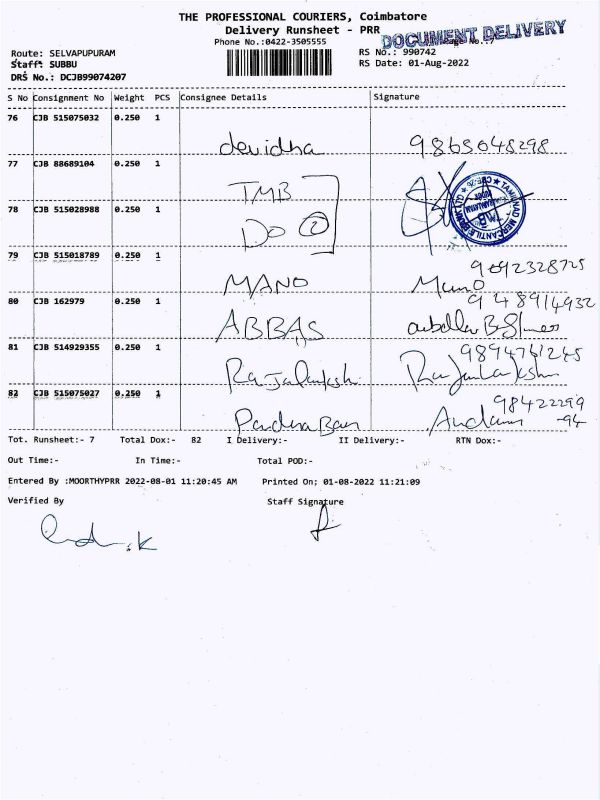 THE PROFESSIONAL COURIERS, Coimbatore
Delivery Runsheet - PRR
DOCUMENT DELIVERY
Phone No.:0422-3505555
Route: SELVAPUPURAM
RS No.: 990742
Staff: SUBBU
RS Date: 01-Aug-2022
DRS No.: DCJB99074207
S No Consignment No Weight PCS Consignee Details Signature
76 CJB 515075032 0.250 1
devidha 9865048298
77 CJB 88689104 0.250 1
TMB
78 CJB 515028988 0.250 1
DO 2
79 CJB 515018789 0.250 1
9092328725
MANO Mano
80 CJB 162979 0.250 1
9489114932
ABBAS
81 CJB 514929355 0.250 1
9894761245
Rajalakshi Rajalakshmi
82 CJB 515075027 0.250 1
9842229994
Tot. Runsheet:- 7 Total Dox:- 82 I Delivery:- II Delivery:- RTN Dox:-
Out Time:- In Time:- Total POD:-
Entered By :MOORTHYPRR 2022-08-01 11:20:45 AM Printed On; 01-08-2022 11:21:09
Verified By Staff Signature